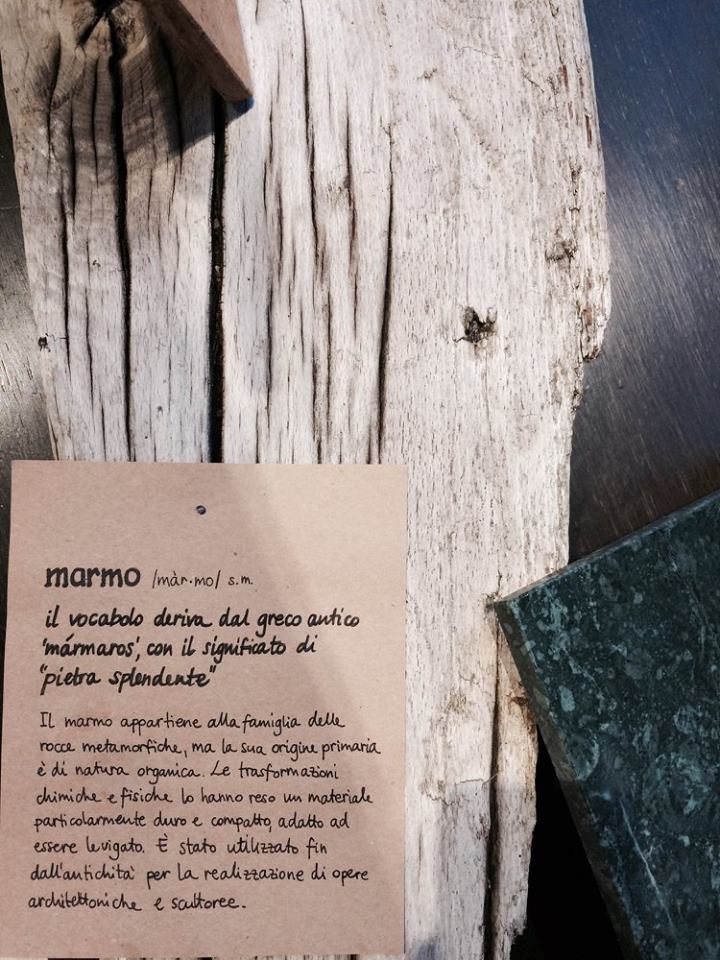 marmo /màr·mo/ s.m.
il vocabolo deriva dal greco antico
'mármaros', con il significato di
"pietra splendente"
Il marmo appartiene alla famiglia delle
rocce metamorfiche, ma la sua origine primaria
è di natura organica. Le trasformazioni
chimiche e fisiche lo hanno reso un materiale
particolarmente duro e compatto, adatto ad
essere levigato. È stato utilizzato fin
dall'antichità per la realizzazione di opere
architettoniche e scultoree.